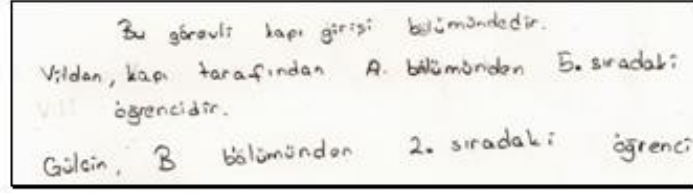 Bu görevli kapı girişi bölümündedir.
Vildan, kapı tarafından A. bölümünden 5. sıradaki
öğrencidir.
Gülcin, B bölümünden 2. sıradaki öğrenci